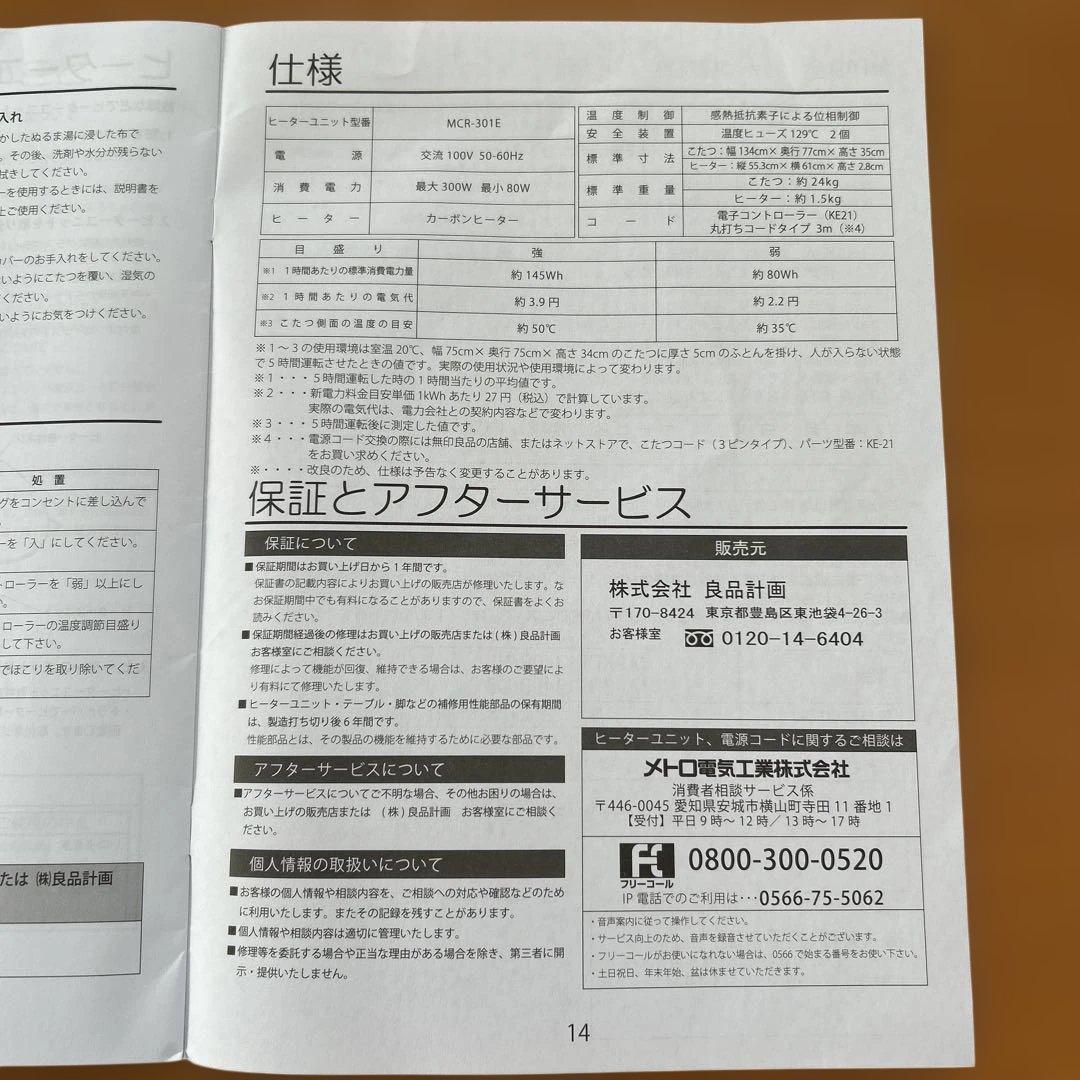 入れ
かしたぬるま湯に浸した布で
。その後、洗剤や水分が残らない
拭きしてください。
ーを使用するときには、説明書を
上ご使用ください。
カバーのお手入れをしてください。
いようにこたつを覆い、湿気の
ください。
いようにお気をつけください。
処 置
グをコンセントに差し込んで
ーを「入」にしてください。
トローラーを「弱」以上にし
い。
トローラーの温度調節目盛り
して下さい。
でほこりを取り除いてくだ
たは ㈱良品計画
仕様
ヒーターユニット型番 MCR-301E
電源 交流 100V 50-60Hz
消費電力 最大 300W 最小 80W
ヒーター カーボンヒーター
温度制御 感熱抵抗素子による位相制御
安全装置 温度ヒューズ 129℃ 2 個
標準寸法 こたつ：幅 134cm× 奥行 77cm× 高さ 35cm
ヒーター：縦 55.3cm× 横 61cm× 高さ 2.8cm
標準重量 こたつ：約 24kg
ヒーター：約 1.5kg
コード 電子コントローラー（KE21）
丸打ちコードタイプ 3m（※4）
目盛り 強 弱
※1 1時間あたりの標準消費電力量 約 145Wh 約 80Wh
※2 1時間あたりの電気代 約 3.9 円 約 2.2 円
※3 こたつ側面の温度の目安 約 50℃ 約 35℃
※１～３の使用環境は室温 20℃、幅 75cm× 奥行 75cm× 高さ 34cm のこたつに厚さ 5cm のふとんを掛け、人が入らない状態
で５時間運転させたときの値です。実際の使用状況や使用環境によって変わります。
※１・・・５時間運転した時の１時間当たりの平均値です。
※２・・・新電力料金目安単価 1kWh あたり 27 円（税込）で計算しています。
実際の電気代は、電力会社との契約内容などで変わります。
※３・・・５時間運転後に測定した値です。
※４・・・電源コード交換の際には無印良品の店舗、またはネットストアで、こたつコード（３ピンタイプ）、パーツ型番：KE-21
をお買い求めください。
※・・・・改良のため、仕様は予告なく変更することがあります。
保証とアフターサービス
保証について
■保証期間はお買い上げ日から１年間です。
保証書の記載内容によりお買い上げの販売店が修理いたします。な
お保証期間中でも有料になることがありますので、保証書をよくお
読みください。
■保証期間経過後の修理はお買い上げの販売店または(株)良品計画
お客様室にご相談ください。
修理によって機能が回復、維持できる場合は、お客様のご要望によ
り有料にて修理いたします。
■ヒーターユニット・テーブル・脚などの補修用性能部品の保有期間
は、製造打ち切り後６年間です。
性能部品とは、その製品の機能を維持するために必要な部品です。
アフターサービスについて
■アフターサービスについてご不明な場合、その他お困りの場合は、
お買い上げの販売店または (株)良品計画 お客様室にご相談く
ださい。
個人情報の取扱いについて
■お客様の個人情報や相談内容を、ご相談への対応や確認などのため
に利用いたします。またその記録を残すことがあります。
■個人情報や相談内容は適切に管理いたします。
■修理等を委託する場合や正当な理由がある場合を除き、第三者に開
示・提供いたしません。
販売元
株式会社 良品計画
〒170-8424 東京都豊島区東池袋4-26-3
お客様室 0120-14-6404
ヒーターユニット、電源コードに関するご相談は
メトロ電気工業株式会社
消費者相談サービス係
〒446-0045 愛知県安城市横山町寺田 11 番地 1
【受付】平日 9 時～ 12 時／ 13 時～ 17 時
フリーコール 0800-300-0520
IP 電話でのご利用は・・・0566-75-5062
・音声案内に従って操作してください。
・サービス向上のため、音声を録音させていただくことがございます。
・フリーコールがお使いになれない場合は、0566 で始まる番号をお使い下さい。
・土日祝日、年末年始、盆は休ませていただきます。
14